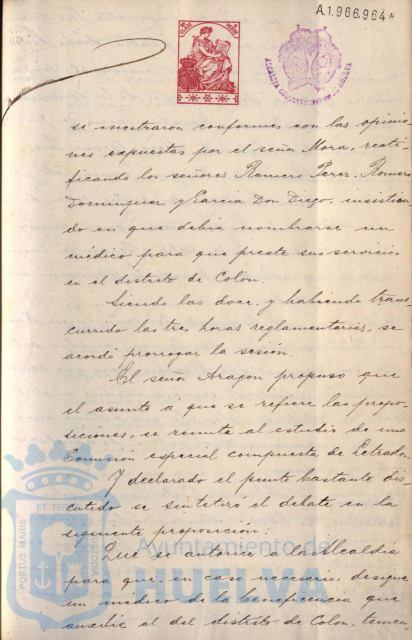 A1.966.964*
se mostraron conformes con las opinio-
nes expuestas por el señor Mora, recti-
ficando los señores Romero Perez, Romero
Dominguez y Garcia Don Diego, insistien-
do en que debia nombrarse un
médico para que preste sus servicios
en el distrito de Colón.
Siendo las doce y habiendo trans-
currido las tres horas reglamentarias, se
acordó prorrogar la sesión.
El señor Aragon propuso que
el asunto á que se refiere las propo-
siciones, se remita al estudio de una
Comisión especial compuesta de Letrados.
Y declarado el punto bastante dis-
cutido se sintetizó el debate en la
siguiente proposición:
Que se autorice a la Alcaldia
para que, en caso necesario, designe
un médico de la beneficencia que
auxilie al del distrito de Colon, tenien
PORTUS MARIS
ET TERRAE
CUSTODIA
Ayuntamiento de
HUELVA